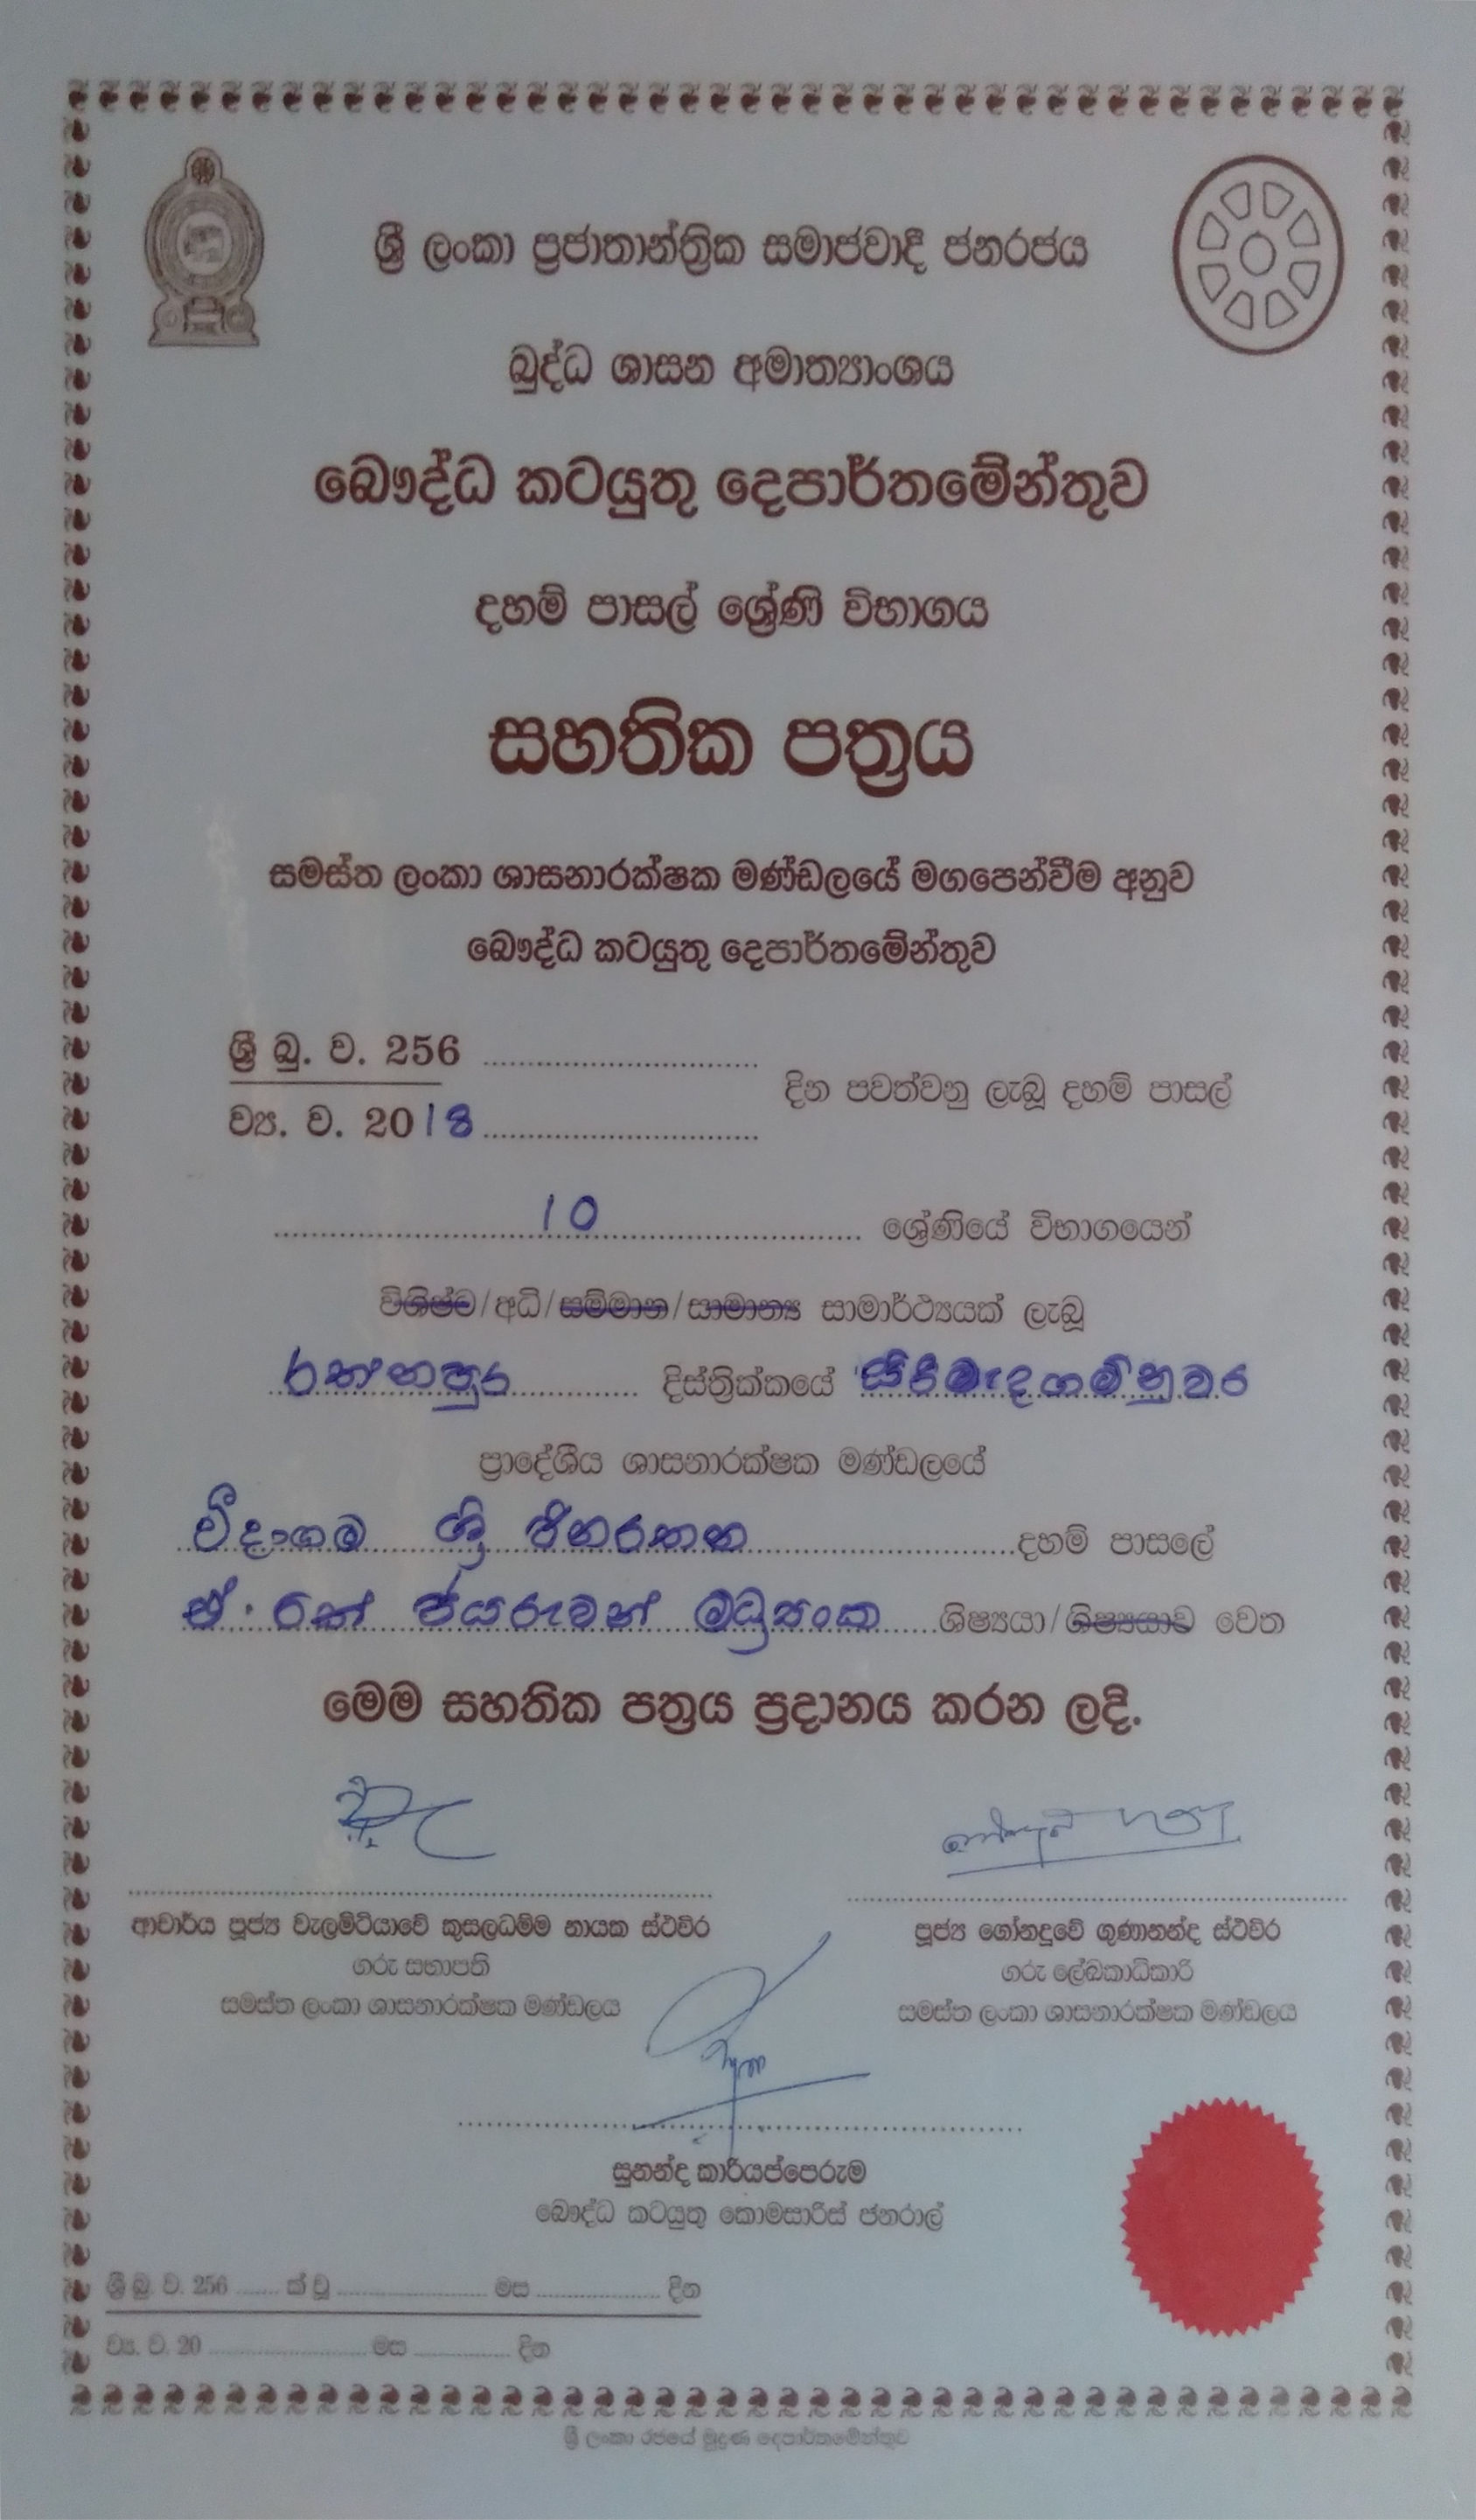 ශ්‍රී ලංකා ප්‍රජාතාන්ත්‍රික සමාජවාදී ජනරජය
බුද්ධ ශාසන අමාත්‍යාංශය
බෞද්ධ කටයුතු දෙපාර්තමේන්තුව
දහම් පාසල් ශ්‍රේණි විභාගය
සහතික පත්‍රය
සමස්ත ලංකා ශාසනාරක්ෂක මණ්ඩලයේ මගපෙන්වීම අනුව
බෞද්ධ කටයුතු දෙපාර්තමේන්තුව
ශ්‍රී බු. ව. 256 ..............................
ව්‍ය. ව. 2018 .............................. දින පවත්වනු ලැබූ දහම් පාසල්
10 ශ්‍රේණියේ විභාගයෙන්
විශිෂ්ට/අධි/සම්මාන/සාමාන්‍ය සාමාර්ථ්‍යයක් ලැබූ
රත්නපුර දිස්ත්‍රික්කයේ සිරිමැදගම්නුවර
ප්‍රාදේශීය ශාසනාරක්ෂක මණ්ඩලයේ
වීදාගම ශ්‍රී ජිනරතන දහම් පාසලේ
ජයරුවන් මධුසංක ශිෂ්‍යයා/ශිෂ්‍යයාව වෙත
මෙම සහතික පත්‍රය ප්‍රදානය කරන ලදි.
ආචාර්ය පූජ්‍ය වැලමිටියාවේ කුසලධම්ම නායක ස්ථවිර
ගරු සභාපති
සමස්ත ලංකා ශාසනාරක්ෂක මණ්ඩලය
පූජ්‍ය ගෝනදූවේ ගුණානන්ද ස්ථවිර
ගරු ලේඛකාධිකාරි
සමස්ත ලංකා ශාසනාරක්ෂක මණ්ඩලය
සුනන්ද කාරියප්පෙරුම
බෞද්ධ කටයුතු කොමසාරිස් ජනරාල්
ශ්‍රී බු. ව. 256 ........ ක් වූ .............................. මස ........................ දින
ව්‍ය. ව. 20 .............................. මස .................... දින
ශ්‍රී ලංකා රජයේ මුද්‍රණ දෙපාර්තමේන්තුව